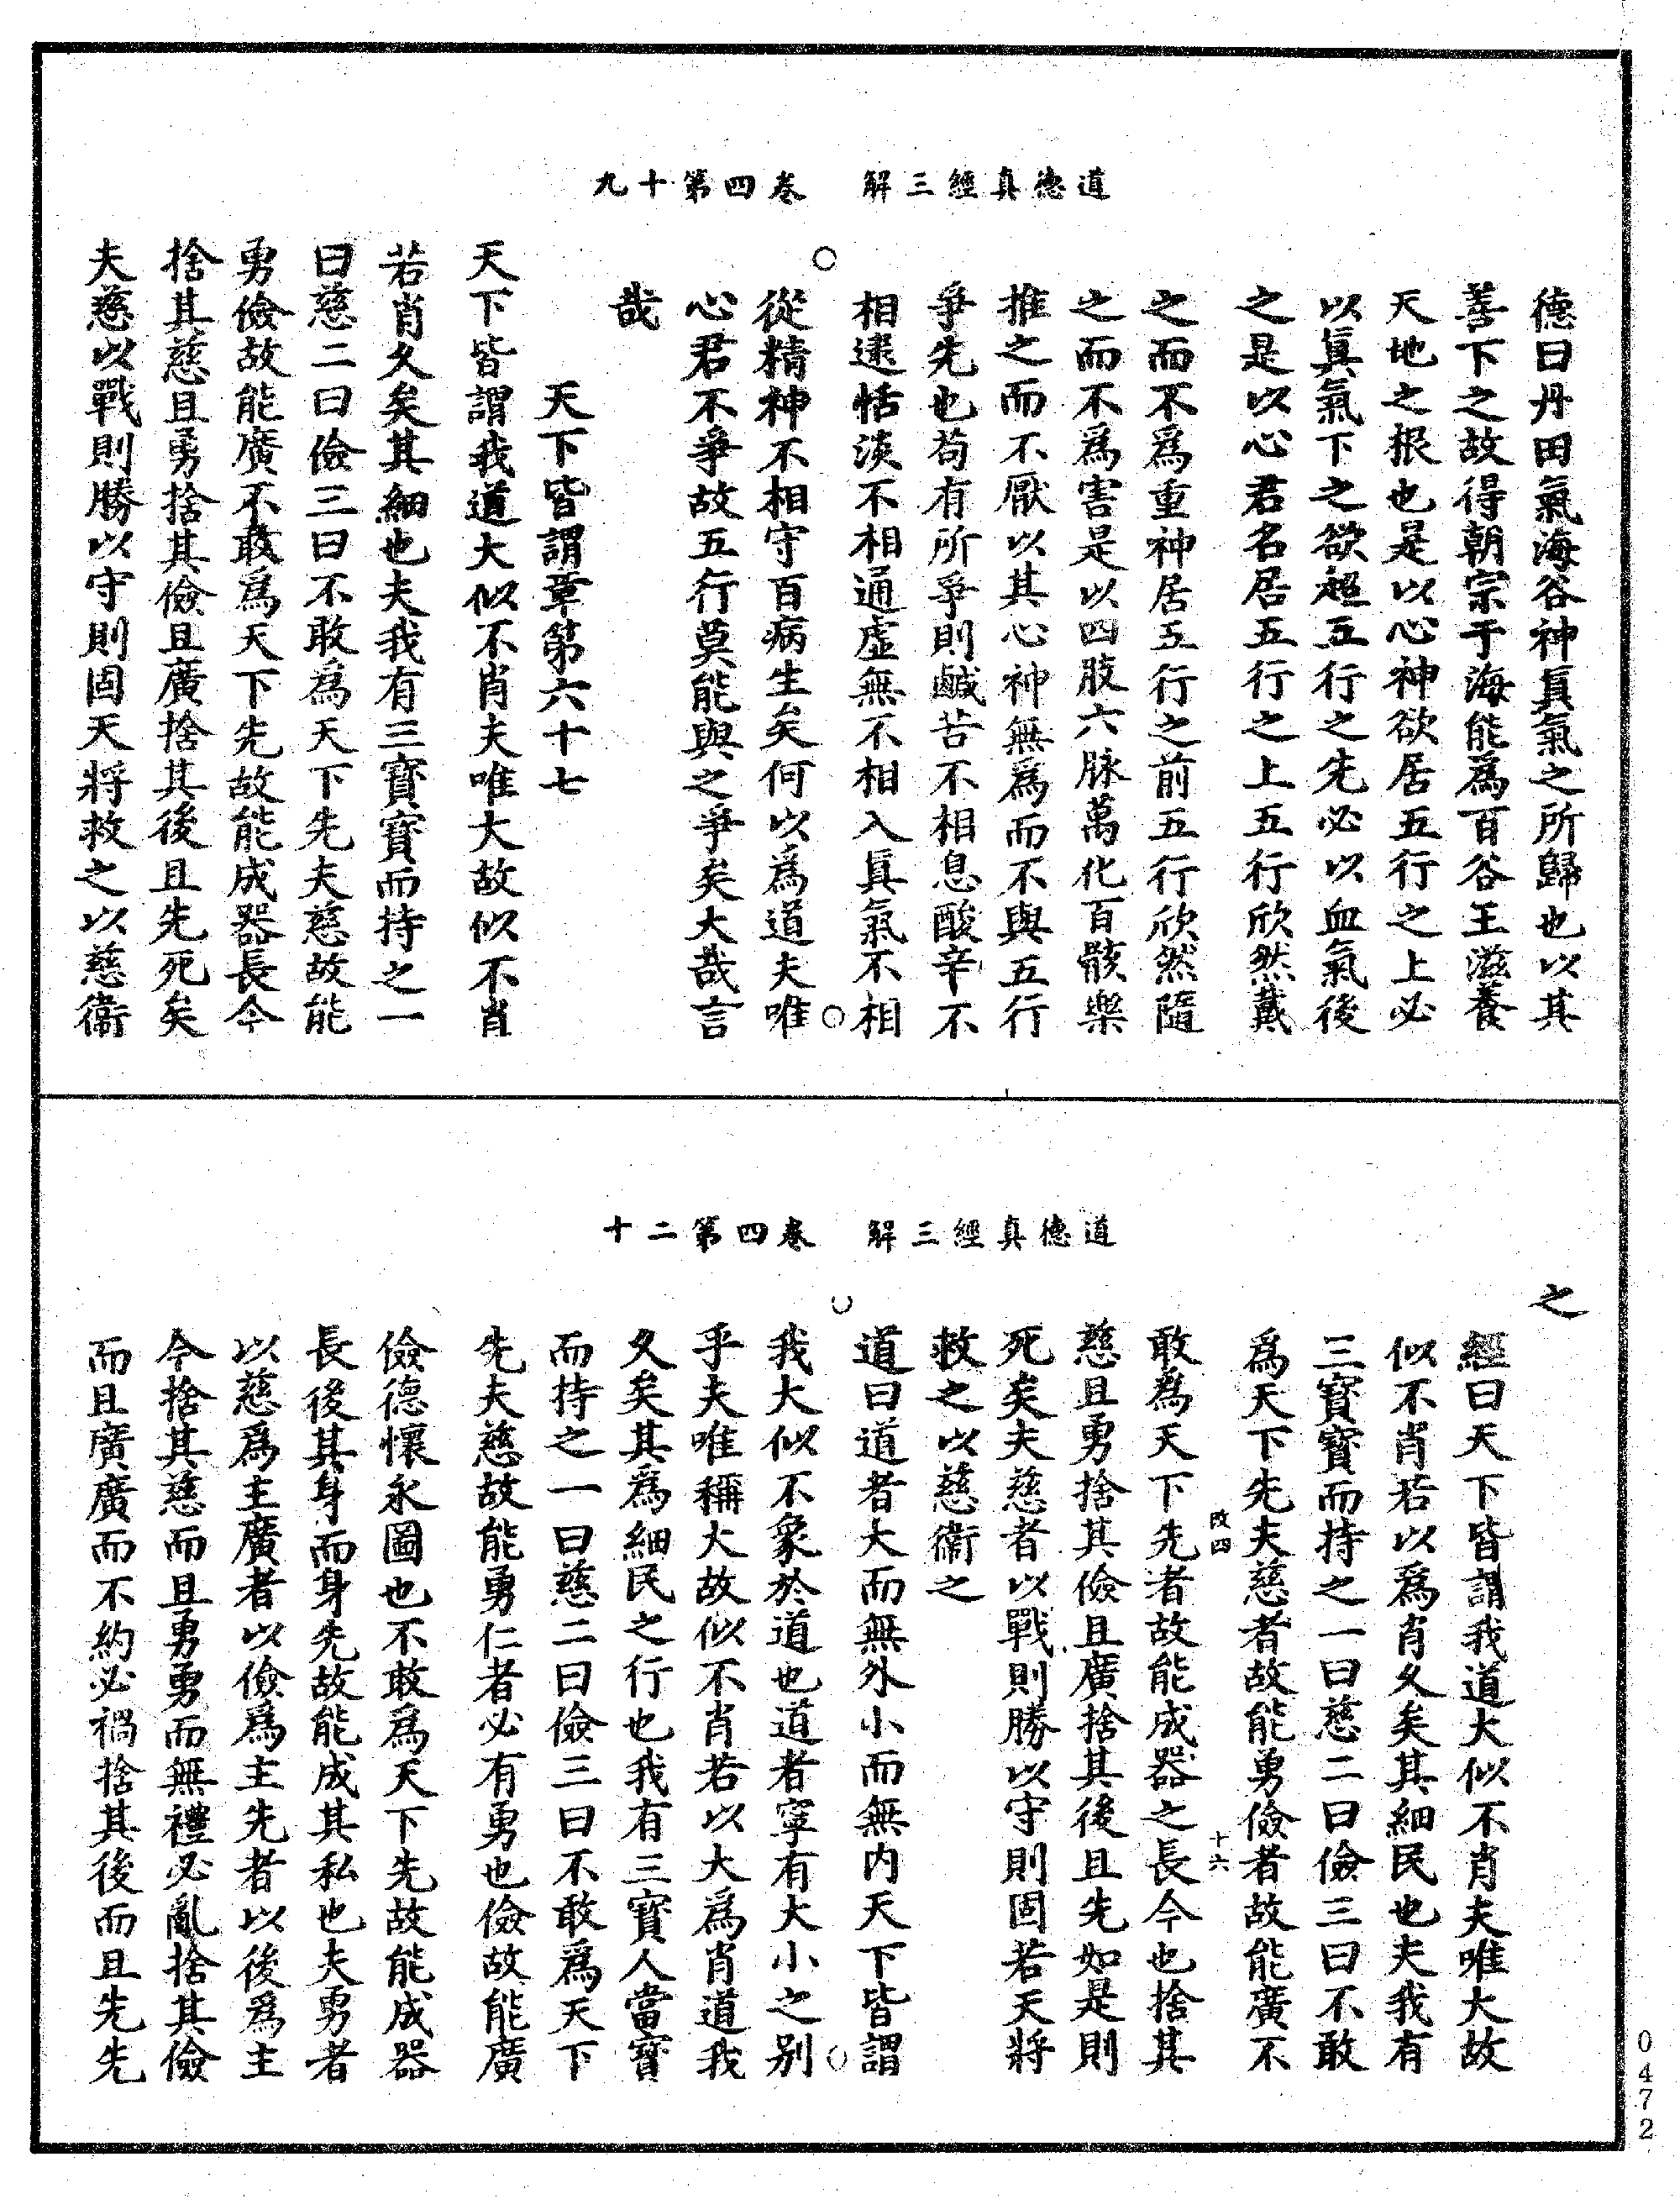 道德真經三解　卷四第十九
德曰丹田氣海谷神真氣之所歸也以其
善下之故得朝宗于海能為百谷王滋養
天地之根也是以心神欲居五行之上必
以真氣下之欲超五行之先必以血氣後
之是以心君名居五行之上五行欣然戴
之而不為重神居五行之前五行欣然隨
之而不為害是以四肢六脉萬化百骸樂
推之而不厭以其心神無為而不與五行
爭先也苟有所爭則鹹苦不相息酸辛不
相逮恬淡不相通虛無不相入真氣不相
從精神不相守百病生矣何以為道夫唯
心君不爭故五行莫能與之爭矣大哉言
哉
天下皆謂章第六十七
天下皆謂我道大似不肖夫唯大故似不肖
若肖久矣其細也夫我有三寶寶而持之一
曰慈二曰儉三曰不敢為天下先夫慈故能
勇儉故能廣不敢為天下先故能成器長今
捨其慈且勇捨其儉且廣捨其後且先死矣
夫慈以戰則勝以守則固天將救之以慈衞
道德真經三解　卷四第二十
之
經曰天下皆謂我道大似不肖夫唯大故
似不肖若以為肖久矣其細民也夫我有
三寶寶而持之一曰慈二曰儉三曰不敢
為天下先夫慈者故能勇儉者故能廣不
改四　十六
敢為天下先者故能成器之長今也捨其
慈且勇捨其儉且廣捨其後且先如是則
死矣夫慈者以戰則勝以守則固若天將
救之以慈衞之
道曰道者大而無外小而無内天下皆謂
我大似不象於道也道者寧有大小之别
乎夫唯稱大故似不肖若以大為肖道我
久矣其為細民之行也我有三寶人當寶
而持之一曰慈二曰儉三曰不敢為天下
先夫慈故能勇仁者必有勇也儉故能廣
儉德懷永圖也不敢為天下先故能成器
長後其身而身先故能成其私也夫勇者
以慈為主廣者以儉為主先者以後為主
今捨其慈而且勇勇而無禮必亂捨其儉
而且廣廣而不約必禍捨其後而且先先
0472